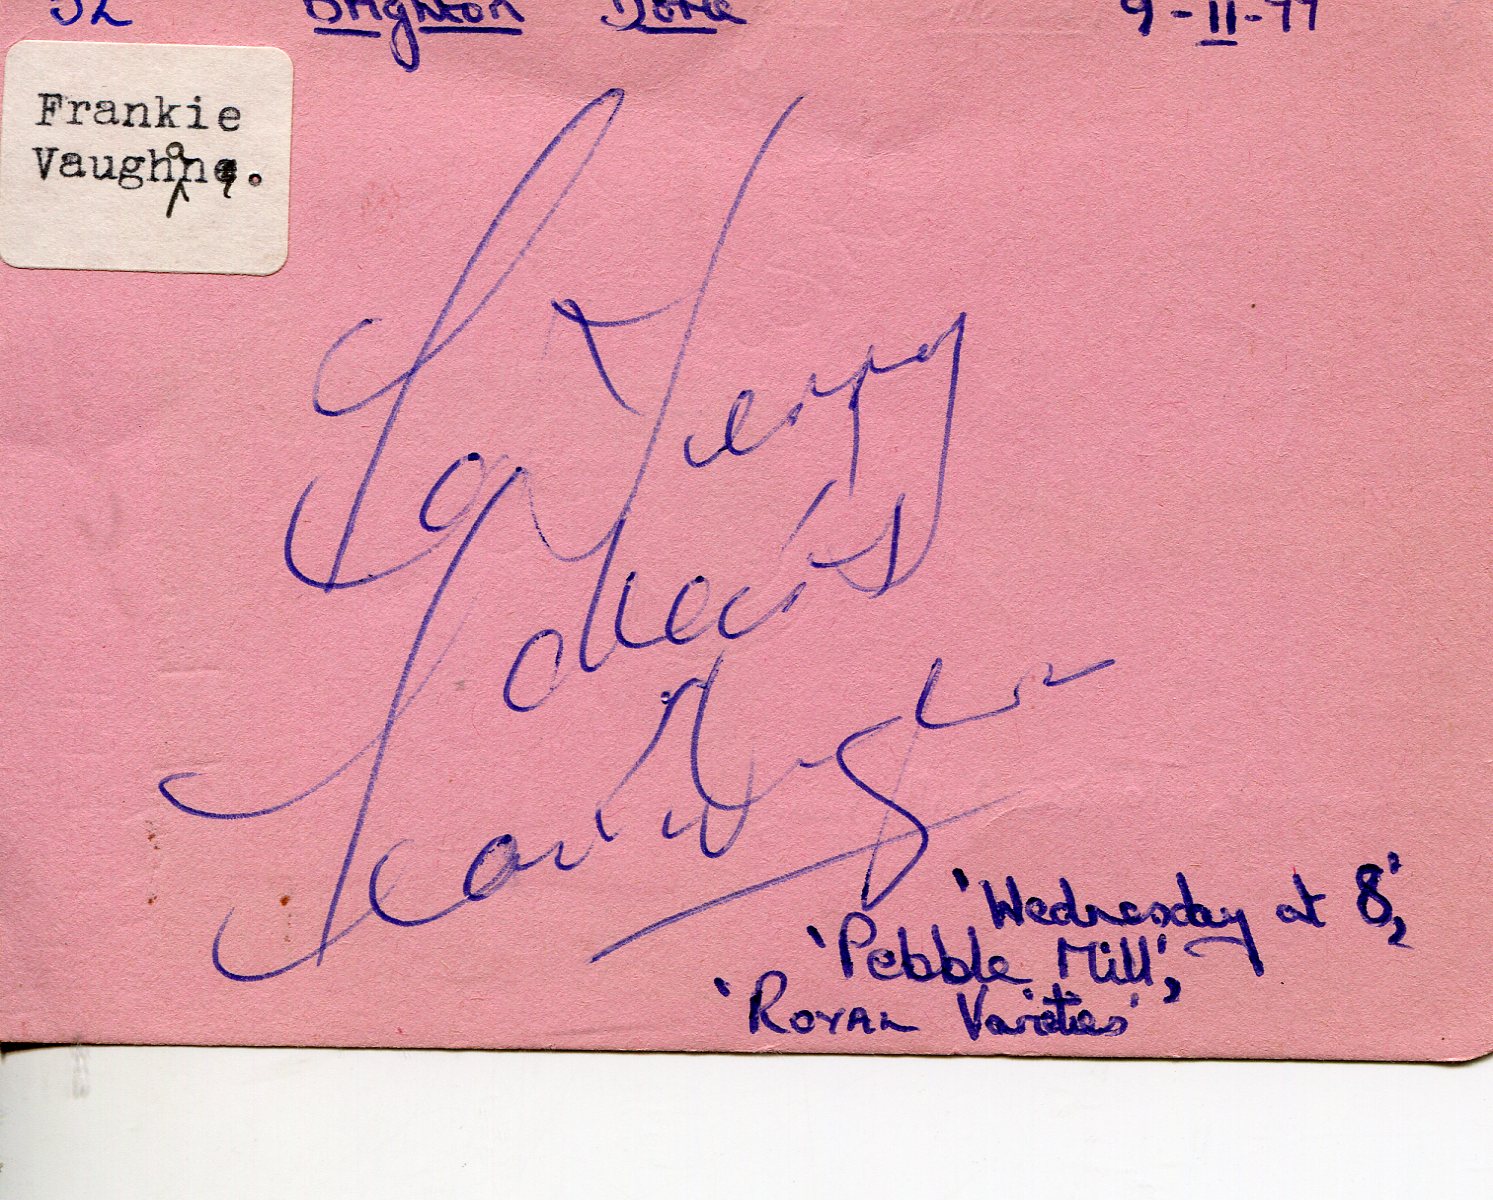 52 Brighton Dome 9-11-77
Frankie
Vaughan.
To Terry
Frankie Vaughan
'Wednesday at 8',
'Pebble Mill',
'Royal Varieties'